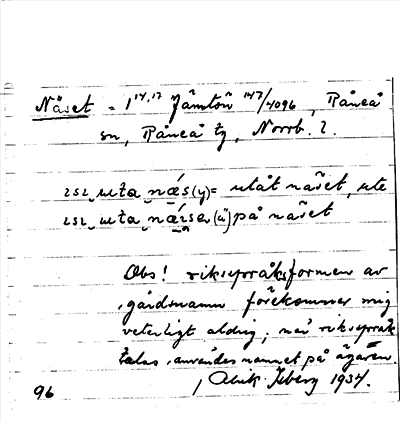 Näset = 1 14,17 Jämtön 147/4096, Råneå
sn, Råneå tg, Norrb. l.
uta næs (y) = utåt näset, ute
uta på näset
Obs! riksspråksformen av
gårdsnamn förekommer mig
veterligt aldrig; när riksspråk
talas, användes namnet på ägaren.
Isberg 1934.
96